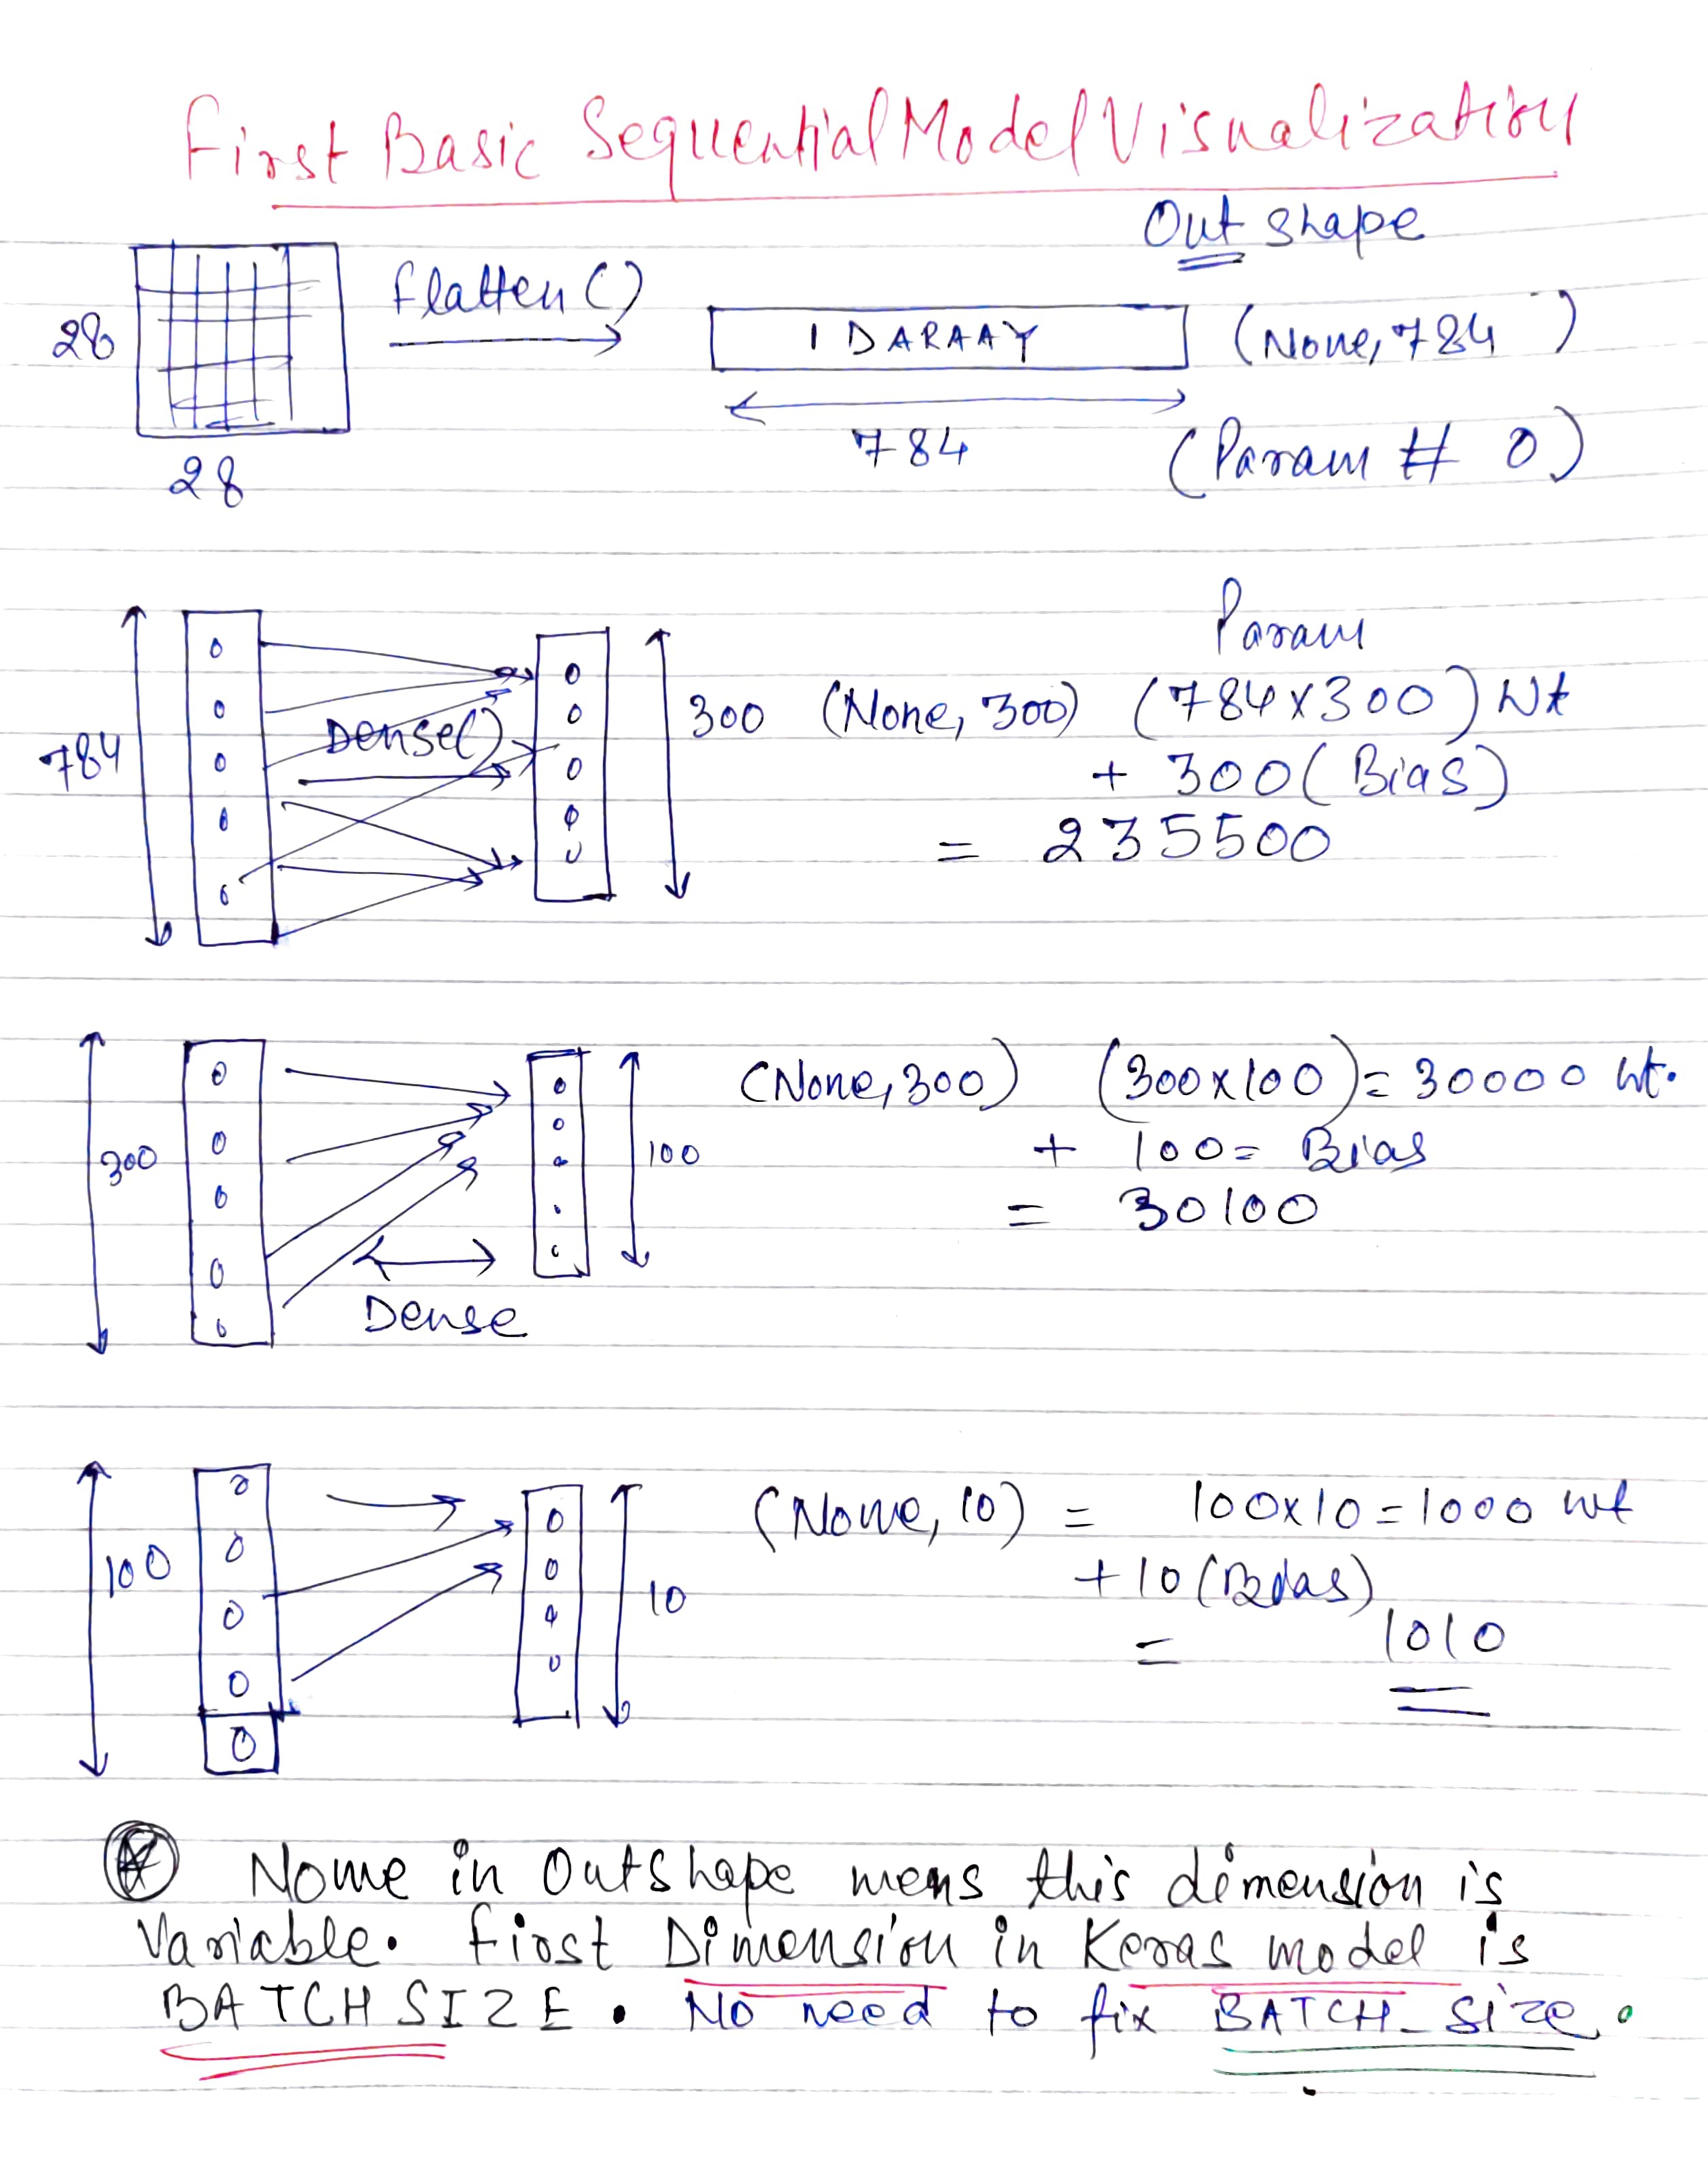 First Basic Sequential Model Visualization
Out shape
28
flatten()
1 D ARAAY
(None, 784 )
784
28
(Param # 0)
Param
784
Dense()
300 (None, 300) (784x300) Wt
+ 300 (Bias)
= 235500
300
100
(None, 300) (300x100) = 30000 wt.
+ 100 = Bias
= 30100
Dense
100
10
(None, 10) = 100x10 = 1000 wt
+10 (Bias)
= 1010
None in Outshape mens this dimension is
Variable. First Dimension in Keras model is
BATCH SIZE. No need to fix BATCH_Size.